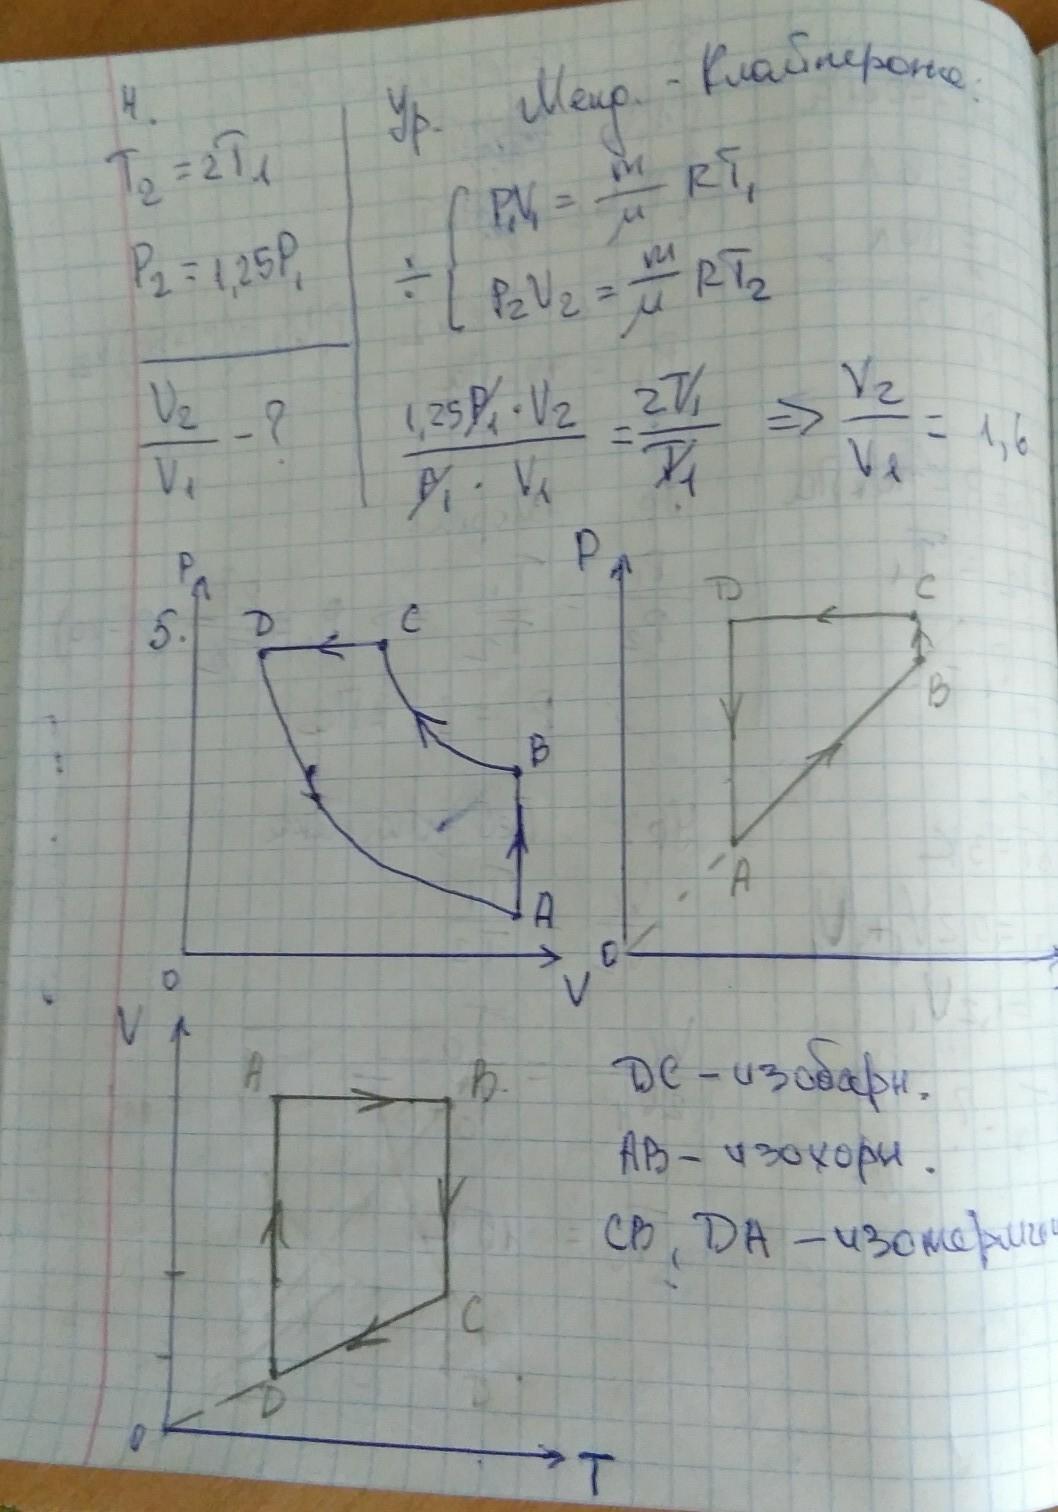 4.
T₂ = 2T₁
P₂ = 1,25P₁
V₂/V₁ - ?
Ур. Менд. - Клайперона:
÷ { P₁V₁ = m/μ RT₁
P₂V₂ = m/μ RT₂
1,25P₁ · V₂ / P₁ · V₁ = 2T₁/T₁ => V₂/V₁ = 1,6
5.
P
D C
B
A
0 V
P
D C
B
A
0
V
A B
C
D
0 T
DC - изобарн.
AB - изохорн.
CB, DA -